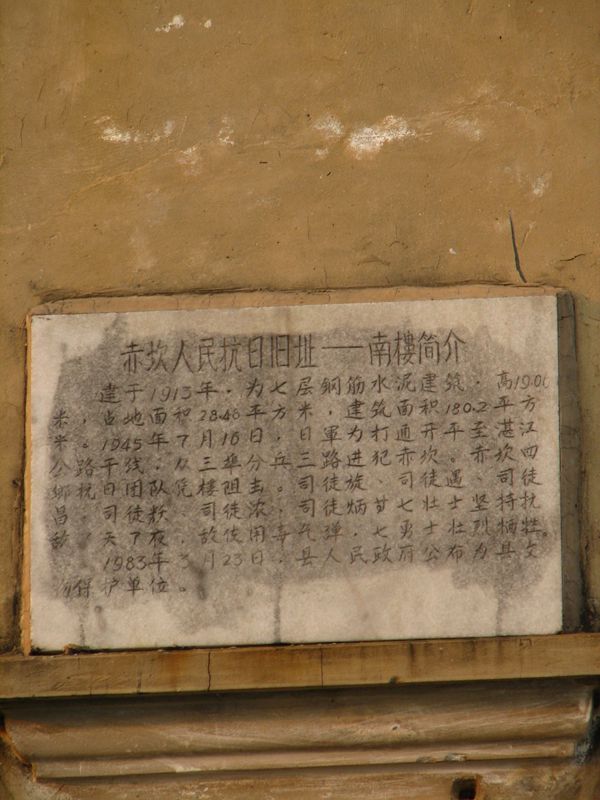 赤坎人民抗日旧址——南樓简介
建于1913年，为七层钢筋水泥建筑，高19.00
米，占地面积28.48平方米，建筑面积180.2平方
米。1945年7月16日，日軍为打通开平至湛江
公路干线，从三埠分兵三路进犯赤坎。赤坎四
鄉抗日团队凭樓阻击。司徒旋、司徒遇、司徒
昌、司徒、司徒浓、司徒炳、七壮士坚持抗
敌天夜，敌使用毒气弹，七勇士壮烈牺牲。
1983年3月23日，县民政府公布为县文
物保护单位。